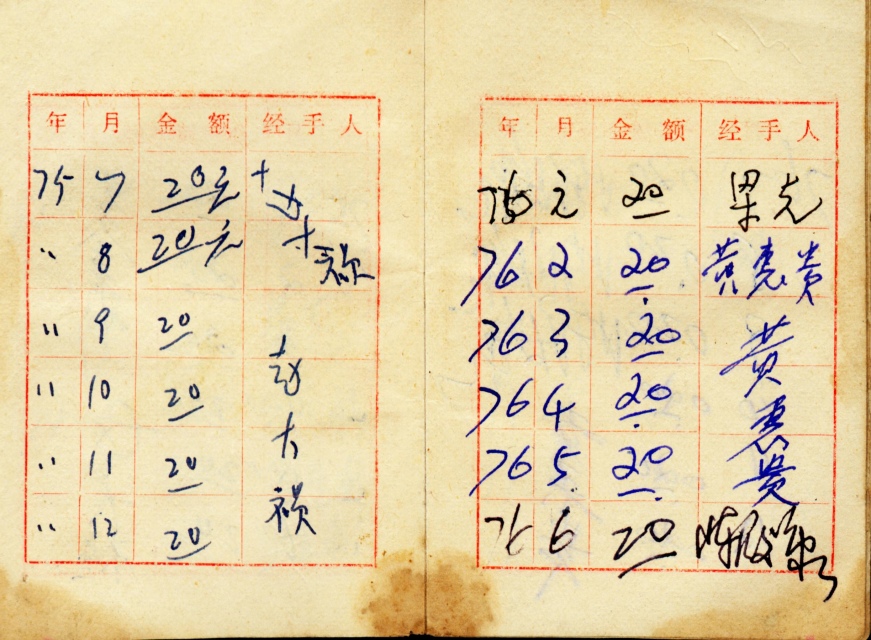 年 月 金额 经手人
75 7 20元
〃 8 20元
〃 9 20
〃 10 20
〃 11 20
〃 12 20
年 月 金额 经手人
76 元 20 梁克
76 2 20 黄惠贵
76 3 20 黄
76 4 20 惠
76 5 20 贵
76 6 20